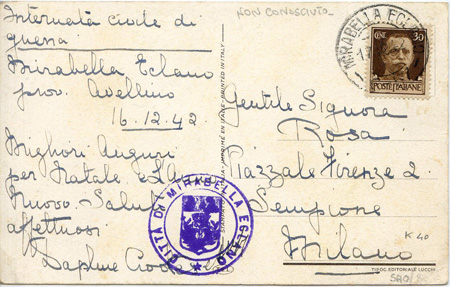 Internata civile di
guerra
Mirabella Eclano
prov. Avellino
16.12.42
Migliori Auguri
per Natale e l'A
Nuovo. Saluti
affettuosi
Daphne
NON CONOSCIUTO
MIRABELLA ECL
CENT 30
POSTE ITALIANE
Gentile Signora
Rosa
Piazzale Firenze 2
Sempione
Milano
CITTÀ DI MIRABELLA ECLANO
K 40
TIPOG. EDITORIALE LUCCHI
PRINTED IN ITALY